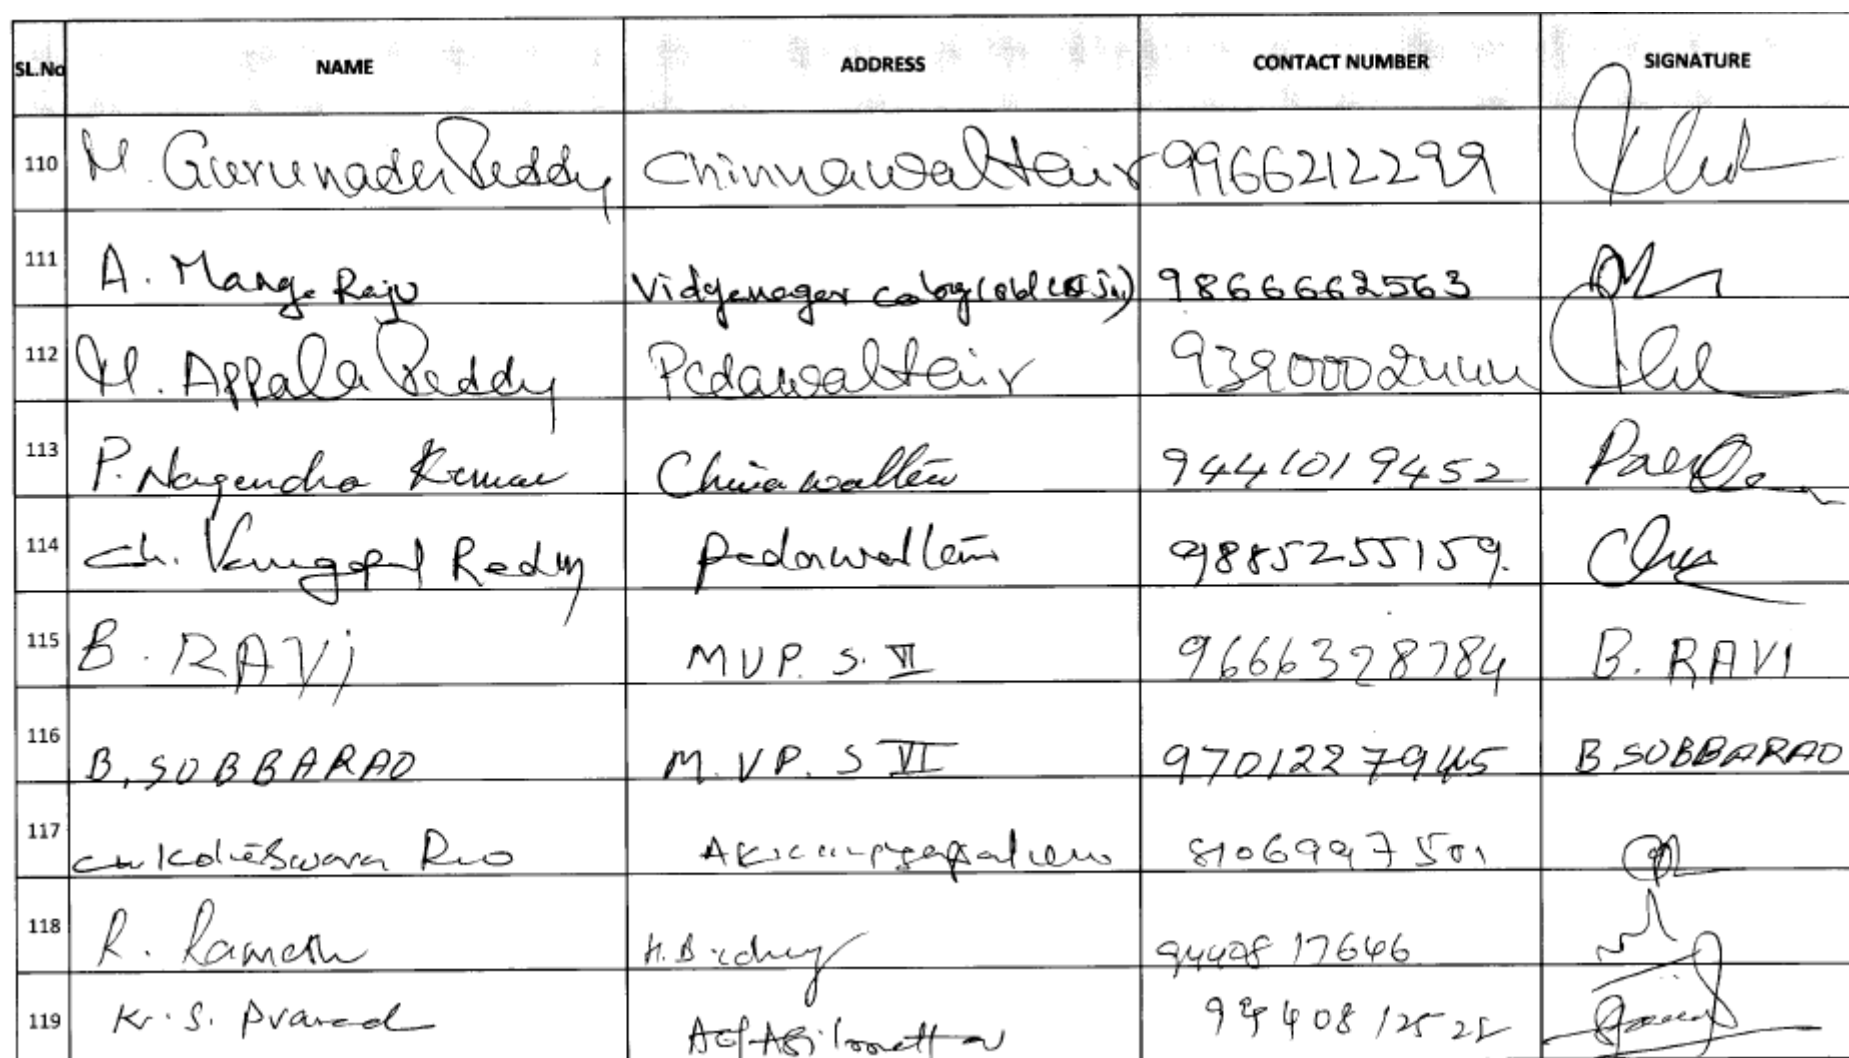 SL.No NAME ADDRESS CONTACT NUMBER SIGNATURE
110 M. Gurunadh Reddy Chinnawaltair 9966212299
111 A. Manga Raju Vidyanagar colony (old 9866662563
112 M. Appala Reddy Pedawaltair
113 P. Nagendra Kumar China waltair 9441019452
114 Ch. Venugopal Reddy pedawaltair 9885255159.
115 B. RAVi MVP. S. VI 9666328784 B. RAVI
116 B. SUBBARAO M. VP. S VI 9701227945 B SUBBARAO
117 Ch Koteswara Rao 8106997501
118 R. Ramesh
119 K. S. Prasad